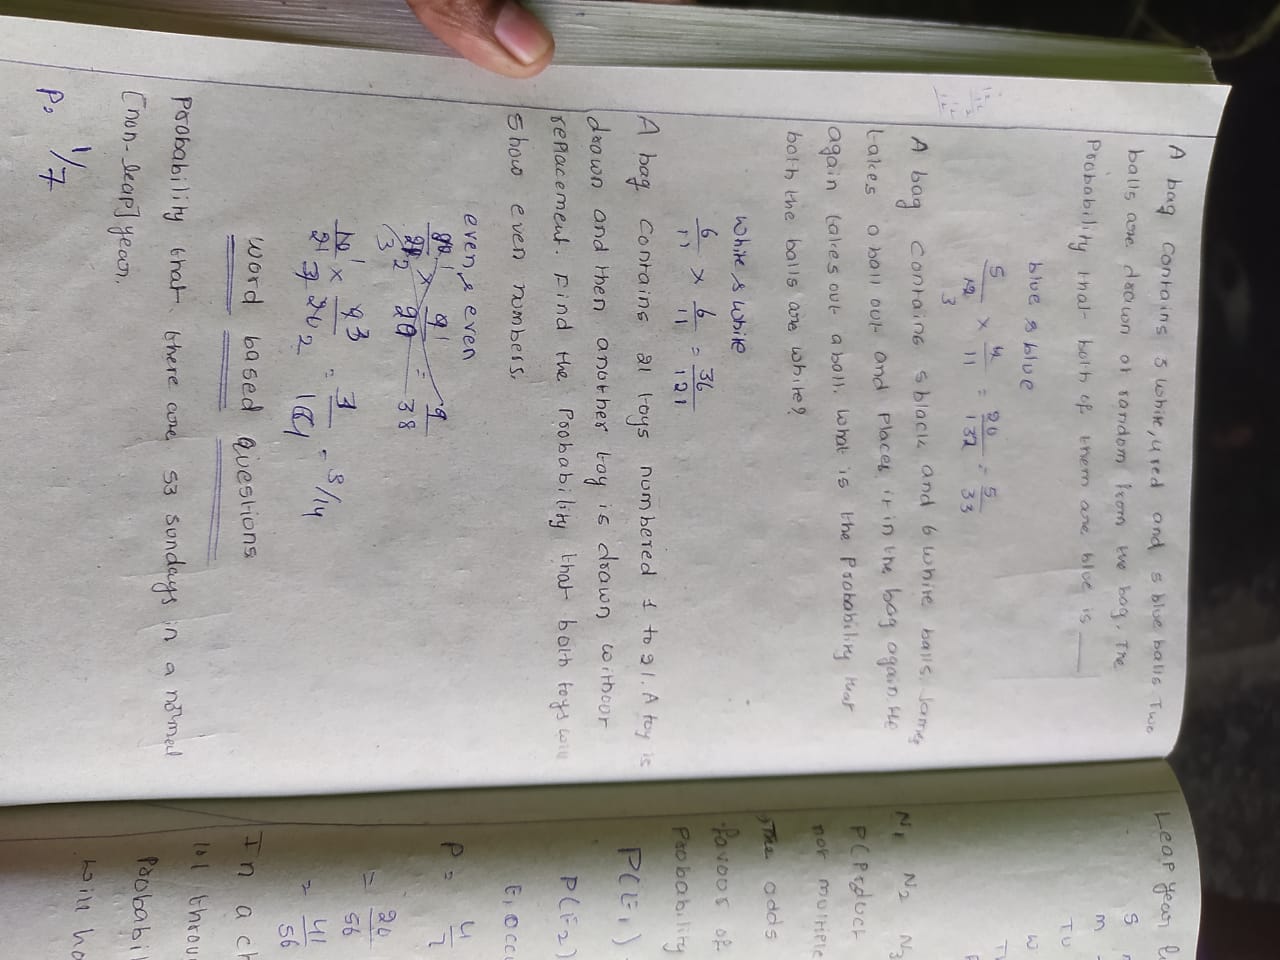 A bag contains 3 white, 4 red and 5 blue balls. Two
balls are drawn at random from the bag. The
Probability that both of them are blue is ___
blue & blue
5/12 × 4/11 = 20/132 = 5/33
3
A bag contains 5 black and 6 white balls.
takes a ball out and places it in the bag again. He
again takes out a ball. What is the Probability that
both the balls are white?
white & white
6/11 × 6/11 = 36/121
A bag contains 21 toys numbered 1 to 21. A toy is
drawn and then another toy is drawn without
replacement. Find the Probability that both toys will
show even numbers.
even, & even
9/20 = 9/38
= 3/14
Word based questions
Probability that there are 53 sundays in a normal
[non-leap] year.
P = 1/7
Leap year
N1 N2 N3
P(Product
not multiple
The odds
favour of
Probability
P(E1)
P(E2)
E1 occu
P = 4/7
= 20/56
= 41/56
In a ch
101 throu
Probabil
win ho